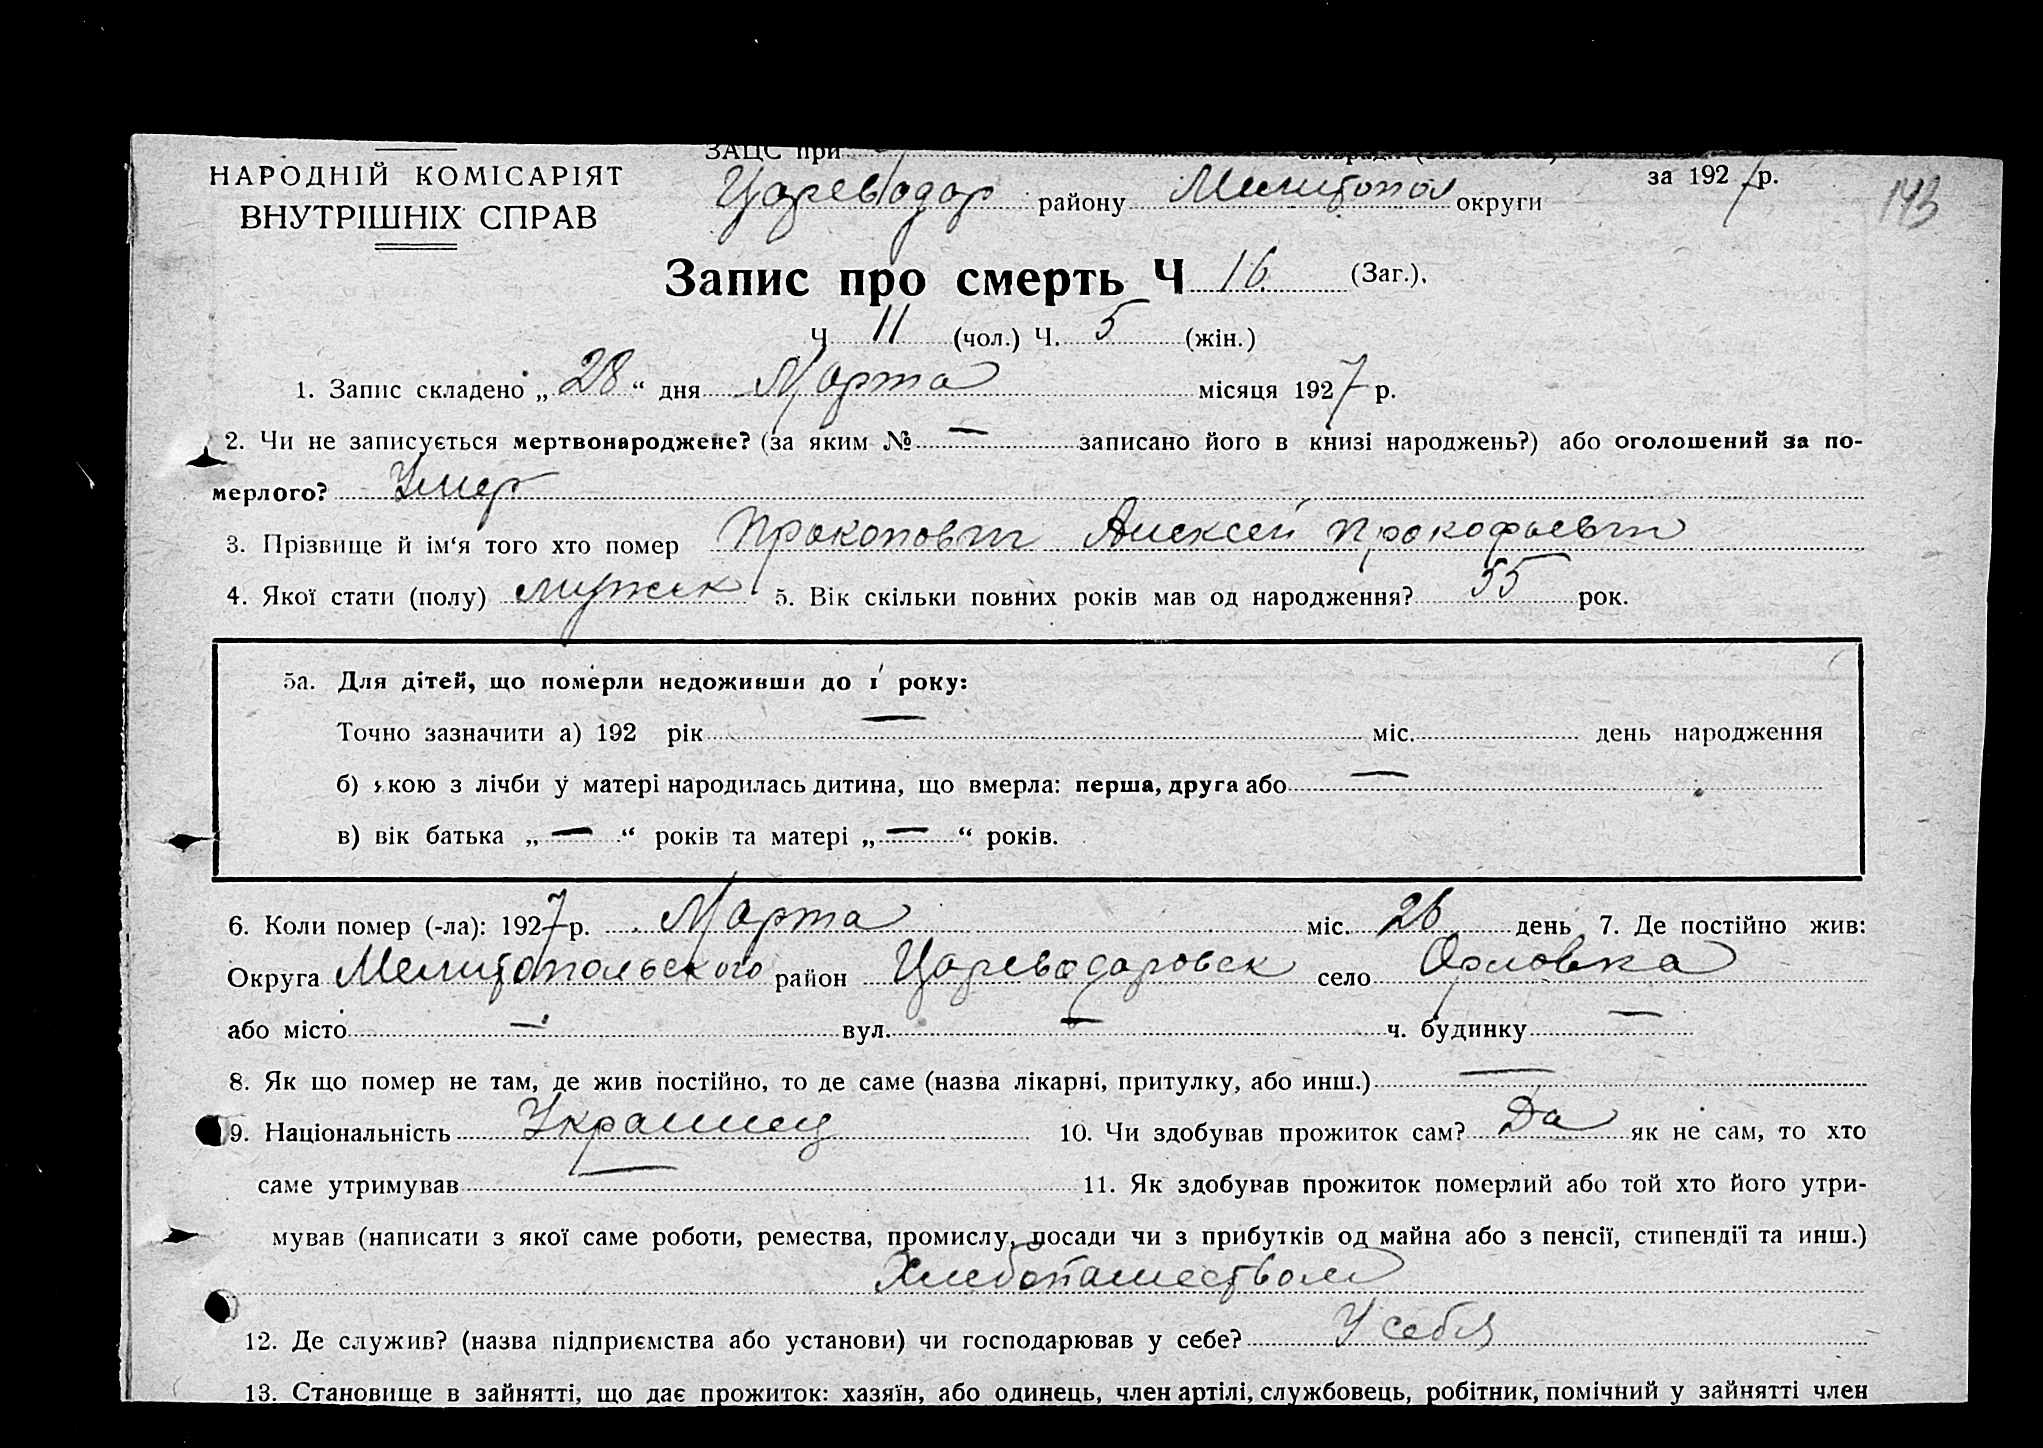 НАРОДНІЙ КОМІСАРІЯТ
ВНУТРІШНІХ СПРАВ
ЗАЦС при
Цареводар району Мелитопол округи
за 1927 р.
143
Запис про смерть Ч 16 (Заг.).
Ч 11 (чол.) Ч. 5 (жін.)
1. Запис складено „28“ дня Марта місяця 1927 р.
2. Чи не записується мертвонароджене? (за яким № — записано його в книзі народжень?) або оголошений за по-
мерлого? Умер
3. Прізвище й ім‘я того хто помер Прокопович Алексей Прокофьевич
4. Якої стати (полу) мужск 5. Вік скільки повних років мав од народження? 55 рок.
5а. Для дітей, що померли недоживши до 1 року:
Точно зазначити а) 192 рік — міс. день народження
б) якою з лічби у матері народилась дитина, що вмерла: перша, друга або —
в) вік батька „—“ років та матері „—“ років.
6. Коли помер (-ла): 1927 р. Марта міс. 26 день 7. Де постійно жив:
Округа Мелитопольского район Цареводаровск село Орловка
або місто — вул. — ч. будинку —
8. Як що помер не там, де жив постійно, то де саме (назва лікарні, притулку, або инш.) —
9. Національність Украинец 10. Чи здобував прожиток сам? Да як не сам, то хто
саме утримував — 11. Як здобував прожиток померлий або той хто його утри-
мував (написати з якої саме роботи, ремества, промислу, посади чи з прибутків од майна або з пенсії, стипендії та инш.)
Хлебопашеством
12. Де служив? (назва підприємства або установи) чи господарював у себе? У себя
13. Становище в зайнятті, що дає прожиток: хазяїн, або одинець, член артілі, службовець, робітник, помічний у зайнятті член